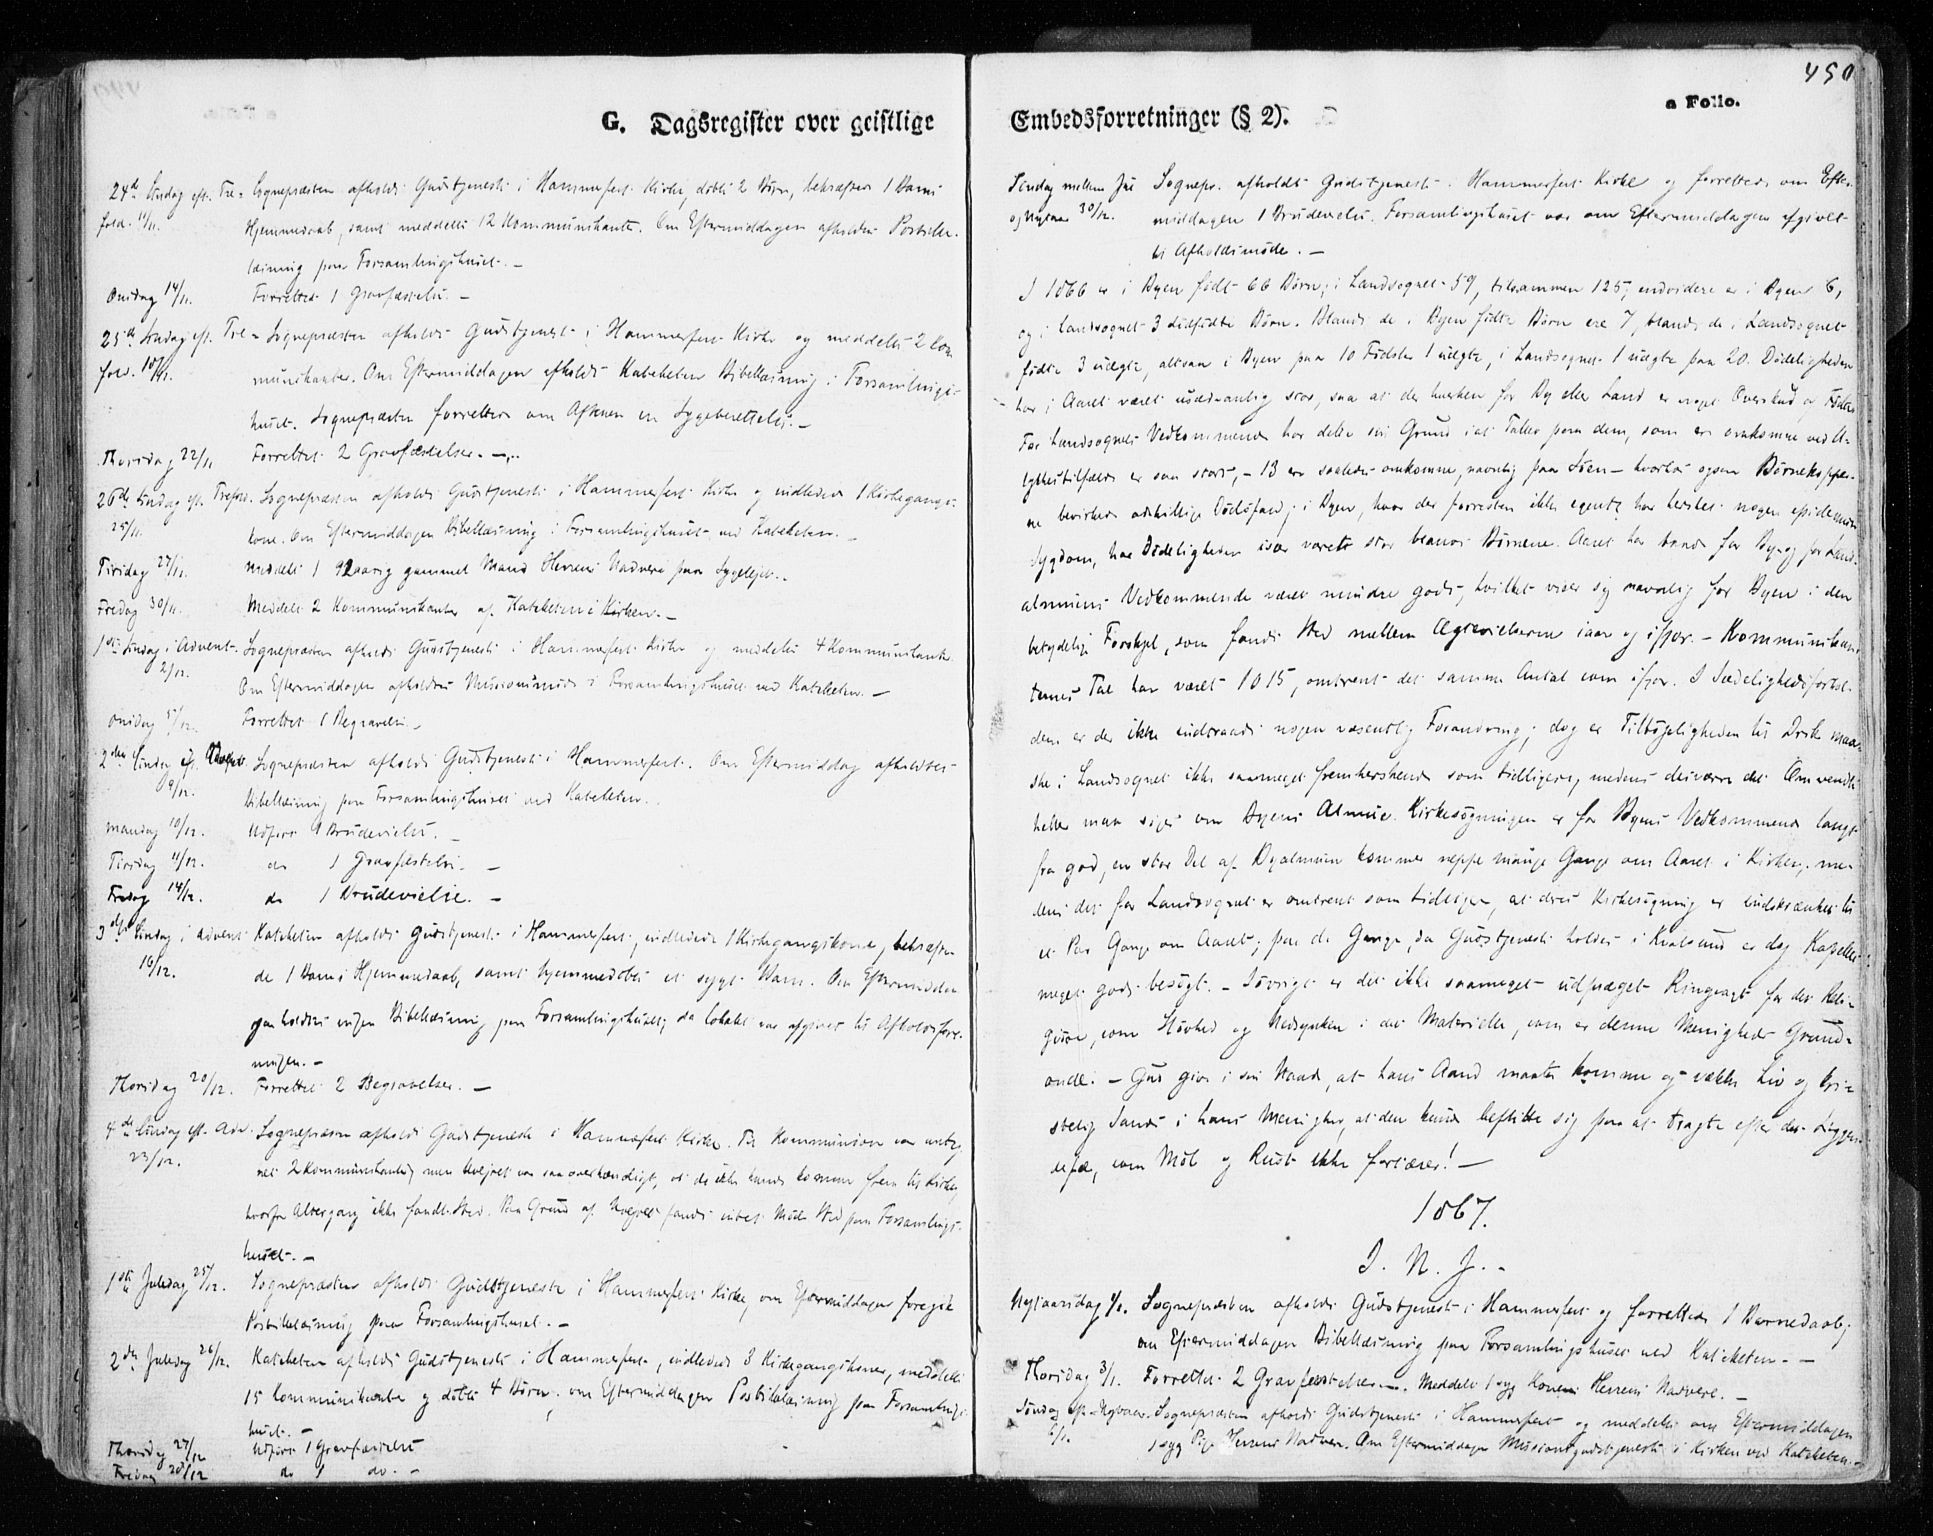 450
a Folio.
G. Dagsregister over geistlige Embedsforretninger (§ 2).
24de Søndag eft. Tre- Sognepræsten afholdt Gudstjeneste i Hammerfest Kirke, døbte 2 Børn, bekræftede 1 Barns
fold. 11/11. Hjemmedaab, samt meddelte 12 Kommunikanter. Om Eftermiddagen afholdtes Postille-
læsning paa Forsamlingshuset. –
Onsdag 14/11. Forrettet 1 Gravfæstelse. –
25de Søndag eft. Tre- Sognepræsten afholdt Gudstjeneste i Hammerfest Kirke og meddelte 2 Kom-
fold. 18/11. munikanter. Om Eftermiddagen afholdt Katekheten Bibellæsning i Forsamlings-
huset. Sognepræsten forrettede om Aftenen en Sygeberettelse. –
Thorsdag 22/11 Forrettet 2 Gravfæstelser. –
26de Søndag eft. Trefold. Sognepræsten afholdt Gudstjeneste i Hammerfest Kirke og indledede 1 Kirkegangs-
25/11. kone. Om Eftermiddagen Bibellæsning i Forsamlingshuset ved Katekheten. –
Tirsdag 27/11. Meddelt 1 92aarig gammel Mand Herrens Nadvere paa Sygelejet. –
Fredag 30/11. Meddelt 2 Kommunikanter af Katekheten i Kirken. –
1ste Søndag i Advent. Sognepræsten afholdt Gudstjeneste i Hammerfest Kirke og meddelte 4 Kommunikanter.
2/12. Om Eftermiddagen afholdtes Missionsmøde i Forsamlingshuset ved Katekheten. –
Onsdag 5/12. Forrettet 1 Begravelse. –
2den Søndag Sognepræsten afholdt Gudstjeneste i Hammerfest. Om Eftermiddag afholdtes
9/12. Bibellæsning paa Forsamlingshuset ved Katekheten.
Mandag 10/12. Udført 1 Brudevielse. –
Tirsdag 11/12. do 1 Gravfæstelse. –
Fredag 14/12. do 1 Brudevielse. –
3die Søndag i Advent Katekheten afholdt Gudstjeneste i Hammerfest, indledede 1 Kirkegangskone, bekræfte-
16/12. de 1 Barns Hjemmedaab, samt hjemmedøbte et sygt Barn. Om Eftermidda-
gen holdtes ingen Bibellæsning paa Forsamlingshuset, da Lokalet var afgivet til Afholdsfore-
ningen. –
Thorsdag 20/12. Forrettet 2 Begravelser. –
4de Søndag eft. Adv. Sognepræsten afholdt Gudstjeneste i Hammerfest Kirke. Til Kommunion var anteg-
23/12. net 2 Kommunikanter, men Uvejret var saa overhændigt, at de ikke kunde komme frem til Kirken,
hvorfor Altergang ikke fandt Sted. Paa Grund af Uvejret fandt intet Møde Sted paa Forsamlings-
huset. –
1ste Juledag 25/12. Sognepræsten afholdt Gudstjeneste i Hammerfest Kirke, om Eftermiddagen foregik
Postillelæsning paa Forsamlingshuset. –
2den Juledag 26/12. Katekheten afholdt Gudstjeneste i Hammerfest, indledede 3 Kirkegangskoner, meddelte
15 Kommunikanter og døbte 4 Børn; om Eftermiddagen Postillelæsning paa Forsamlings-
huset. –
Thorsdag 27/12 Udført 1 Gravfæstelse
Fredag 28/12 do 1 do. –
Søndag mellem Jul Sognepr. afholdt Gudstjeneste i Hammerfest Kirke og forrettede om Efter-
og Nytaar 30/12. middagen 1 Brudevielse. Forsamlingshuset var om Eftermiddagen afgivet
til Afholdsmøde. –
I 1866 er i Byen født 66 Børn, i Landsognet 59, tilsammen 125; endvidere er i Byen 6,
og i Landsognet 3 dødfødte Børn. Blandt de i Byen fødte Børn ere 7, blandt de i Landsognet
fødte 3 uægte, altsaa i Byen paa 10 Fødsler 1 uægte, i Landsognet 1 uægte paa 20. Dødeligheden
har i Aaret været usædvanlig stor, saa at der hverken for By eller Land er noget Overskud af Fødte.
For Landsognets Vedkommende har dette sin Grund i at Tallet paa dem, som ere omkomne ved U-
lykkestilfælde er saa stort, – 13 ere saaledes omkomne, navnlig paa Søen – hvortil ogsaa Børnekopper-
ne bevirkede adskillige Dødsfald; i Byen, hvor der forresten ikke egentlig har hersket nogen epidemisk
Sygdom, har Dødeligheden især været stor blandt Børnene. Aaret har baade for By- og for Land-
almuens Vedkommende været mindre godt, hvilket viser sig navnlig for Byen i den
betydelige Forskjel, som fandt Sted mellem Ægtevielserne iaar og ifjor. – Kommunikan-
ternes Tal har været 1015, omtrent det samme Antal som ifjor. I Sædelighedsforhol-
dene er der ikke indtraadt nogen væsentlig Forandring; dog er Tilbøjeligheden til Drik maa-
ske i Landsognet ikke saameget fremherskende som tidligere, medens desværre det Omvendte
heller maa siges om Byens Almue. Kirkesøgningen er for Byens Vedkommende langt
fra god, en stor Del af Byalmuen kommer neppe mange Gange om Aaret i Kirken, me-
dens det for Landsognet er omtrent som tidligere, at deres Kirkesøgning er indskrænket til
et Par Gange om Aaret; paa de Gange, da Gudstjeneste holdes i Kvalsund er dog Kapellet
meget godt besøgt. – Iøvrigt er det ikke saameget udpræget Ringeagt for det Reli-
giøse, som Sløvhed og Nedsynken i det Materielle, som er denne Menigheds Grund-
onde. – Gud give i sin Naade, at hans Aand maatte komme og vække Liv og kri-
stelig Sands i hans Menighed, at den kunde beflitte sig paa at tragte efter det Liggen-
defæ, som Møl og Rust ikke fortærer! –
1867.
I. N. J. –
Nytaarsdag 1/1. Sognepræsten afholdt Gudstjeneste i Hammerfest og forrettede 1 Barnedaab;
om Eftermiddagen Bibellæsning paa Forsamlingshuset ved Katekheten. –
Thorsdag 3/1. Forrettet 2 Gravfæstelser. Meddelt 1 syg Kone Herrens Nadvere. –
Søndag eft. Nytaar. Sognepræsten afholdt Gudstjeneste i Hammerfest og meddelte om Eftermiddagen
6/1. 1 syg Pige Herrens Nadvere. Om Eftermiddagen Missionsgudstjeneste i Kirken ved Katekheten. –